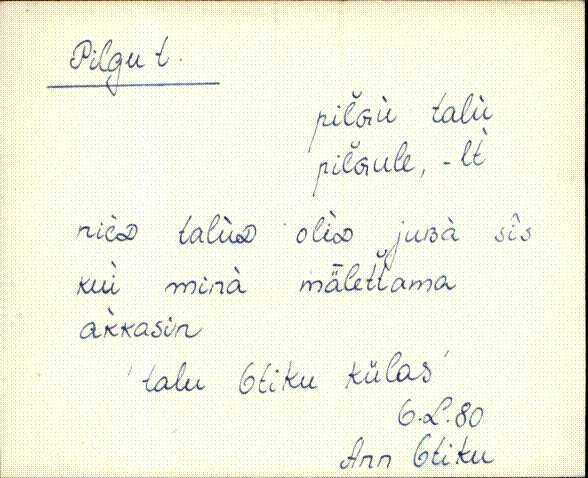 Pilgu t.
pil̆Gù talù
pil̆Gule, -lt̀
nièD talùD olìD juBà sîs
kuì minà mäletťama
àkkasin
'talu Otiku külas'
O.L.80
Ann Otiku